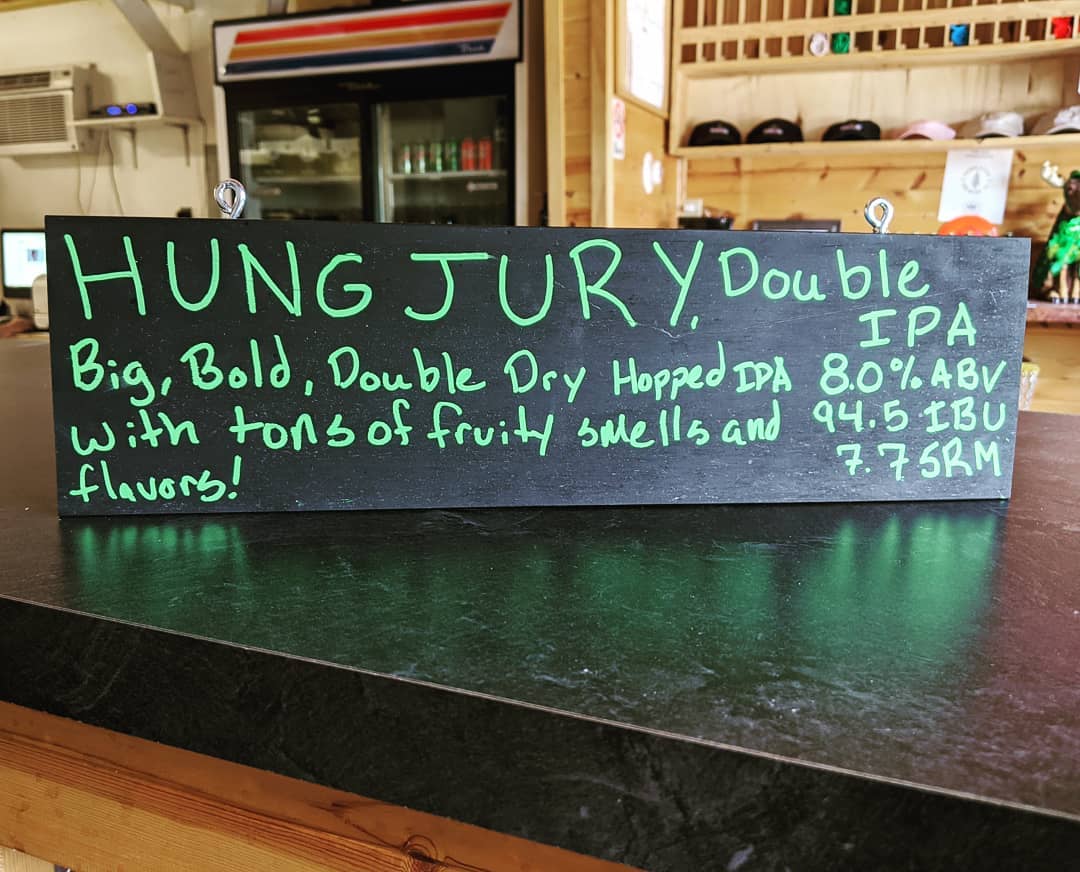 HUNG JURY. Double
IPA
Big, Bold, Double Dry Hopped IPA
with tons of fruity smells and
flavors!
8.0% ABV
94.5 IBU
7.7 SRM